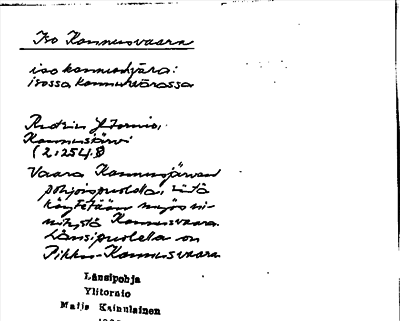 Iso Kannusvaara
iso kannusvāra:
isossa kannusvārassa
Ylitornio,
Kannusjärvi
(2:254:8)
Vaara Kannusjärven
pohjoispuolella, siitä
käytetään myös ni-
mitystä Kannusvaara.
Länsipuolella on
Pikku-Kannusvaara
Länsipohja
Ylitornio
Maija Kainulainen